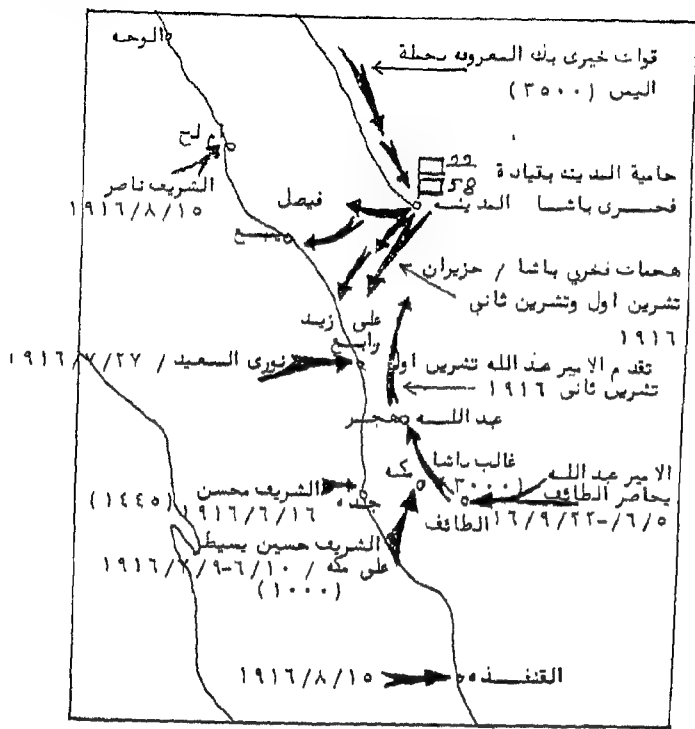 الوجه
قوات خيرى بك المعروفه بحملة
اليمن (٣٥٠٠)
ام لج
الشريف ناصر
١٩١٦/٨/١٥
22
58
حامية المدينه بقيادة
فخرى باشا
المدينه
فيصل
ينبع
هجمات فخري باشا / حزيران
تشرين اول وتشرين ثاني
١٩١٦
على زيد
رابغ
نورى السعيد / ١٩١٦/٧/٢٧
تقدم الامير عبد الله تشرين اول
تشرين ثانى ١٩١٦
عبد الله
هجر
غالب باشا
(٣٠٠٠)
مكه
الامير عبد الله
يحاصر الطائف
٦/٥/-١٦/٩/٢٢
الطائف
الشريف محسن
جده
١٩١٦/٦/١٦ (١٤٤٥)
الشريف حسين يسيطر
على مكه / ٦/١٠-١٩١٦/٧/٩
(١٠٠٠)
القنفذه
١٩١٦/٨/١٥